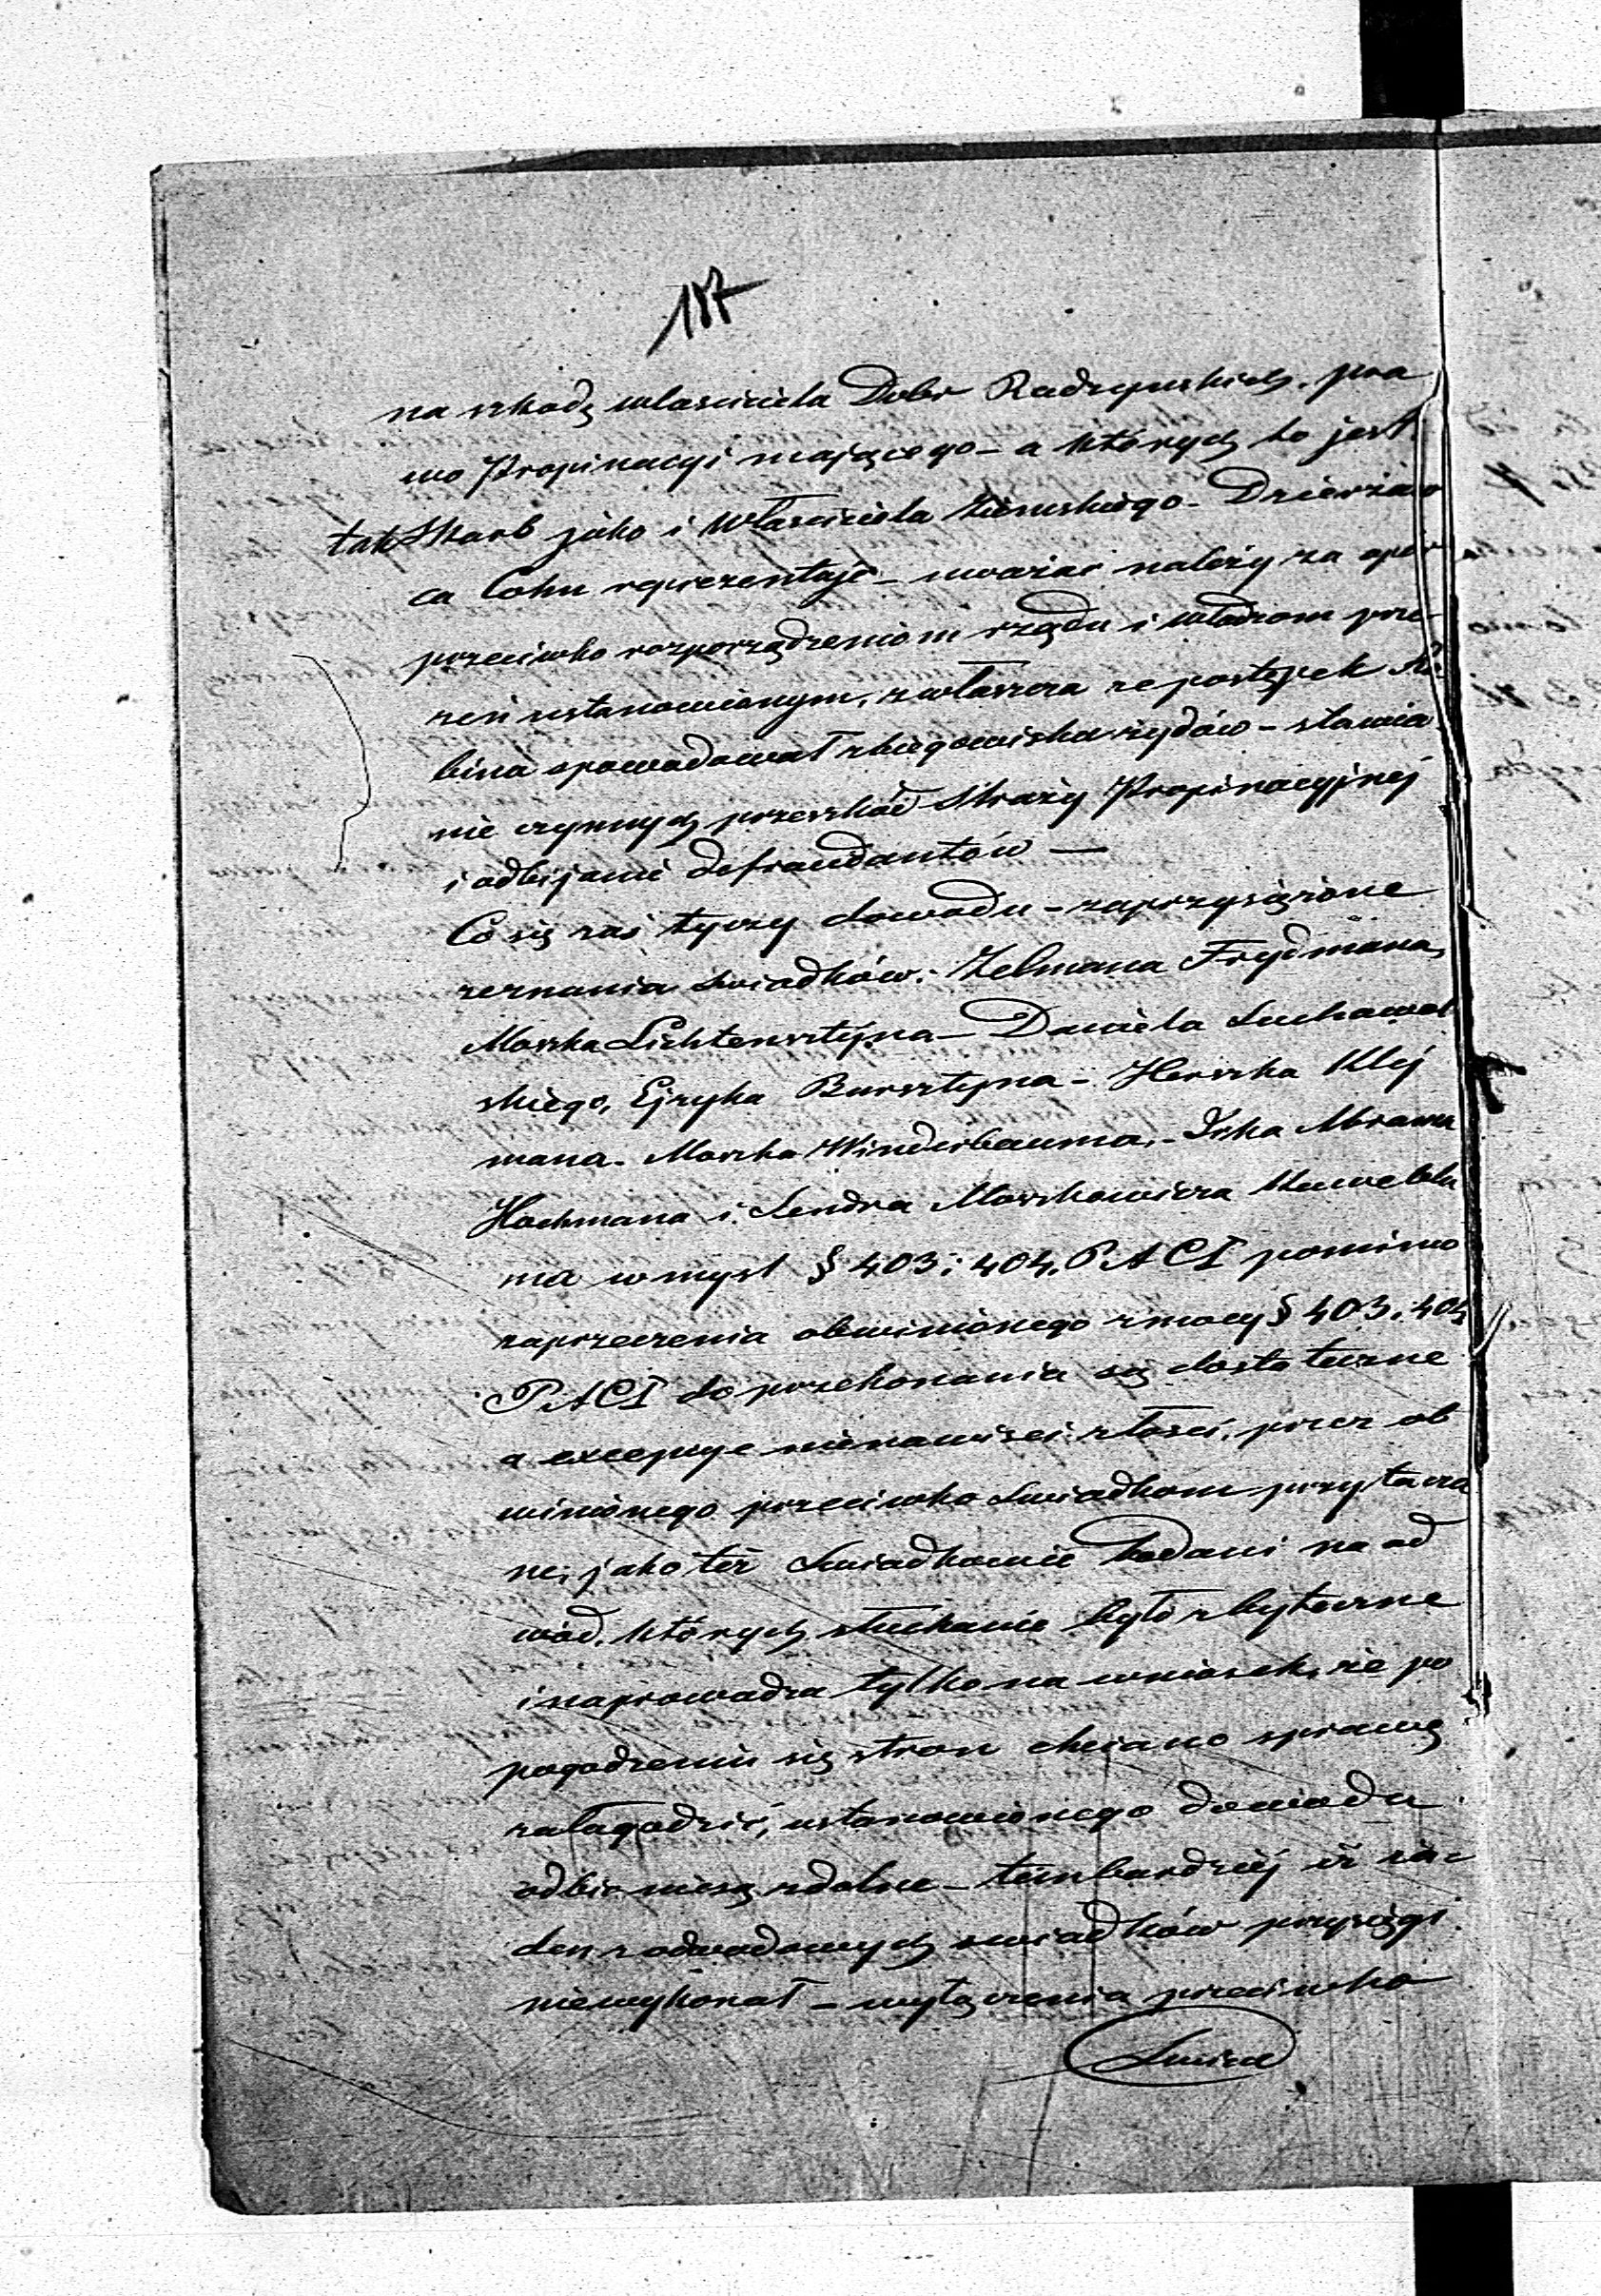 187
na szkodę wlasciciela Dobr Radzynskich, pra
wo Propinacyi mającego – a których to jest
tak Skarb jako i Własciciela Ziemskiego – Dzierżaw
ca Cohn reprezentuje – uważać należy za opór
przeciwko rozporządzeniom rządu i władzom prze
zeń ustanowionym, zwłaszcza ze postępek Ra
bina spowodował zbiegowisko żydów – stawia
nie czynnych przeszkód Straży Propinacyjnej
i odbijanie defraudantów —
Co się zaś tyczy dowodu – zaprzysiężone
zeznania Swiadków: Zelmana Frydmana,
Moszka Lichtensztejna – Daniela Suchawol
skiego, Ejzyka Bursztyna – Herszka Klej
mana – Moszka Winderbauma, – Icka Abrama
Hochmana i Sendra Moszkowicza
ma w mysl § 403 i 404. P A C I pomimo
zaprzeczenia obwinionego z mocy § 403. 404
P A C I do przekonania są dostateczne
a excepcye nienawisci i złości, przez ob
winionego przeciwko Swiadkom przytacza
ne, jako też Swiadkowie podani na od
wód, których słuchanie było zbyteczne
i naprowadza tylko na wniosek, że po
pogodzeniu się stron chciano sprawę
załagodzić, ustanowionego dowodu
odbić niesą zdolne – tembardziej iż ża
den z odwodowych swiadków przysięgi
niewykonał – wyłączenia przeciwko
Swiad